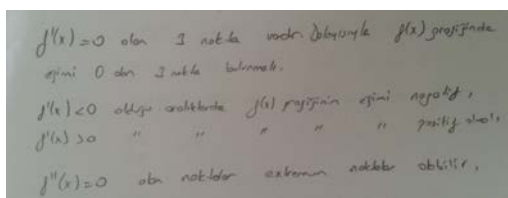 f'(x)=0 olan 3 nokta vardır. Dolayısıyla f(x) grafiğinde
eğimi 0 olan 3 nokta bulunmalı.
f'(x)<0 olduğu aralıklarda f(x) grafiğinin eğimi negatif,
f'(x)>0 " " " " " pozitif olmalı,
f"(x)=0 olan noktalar extremum noktaları olabilir.